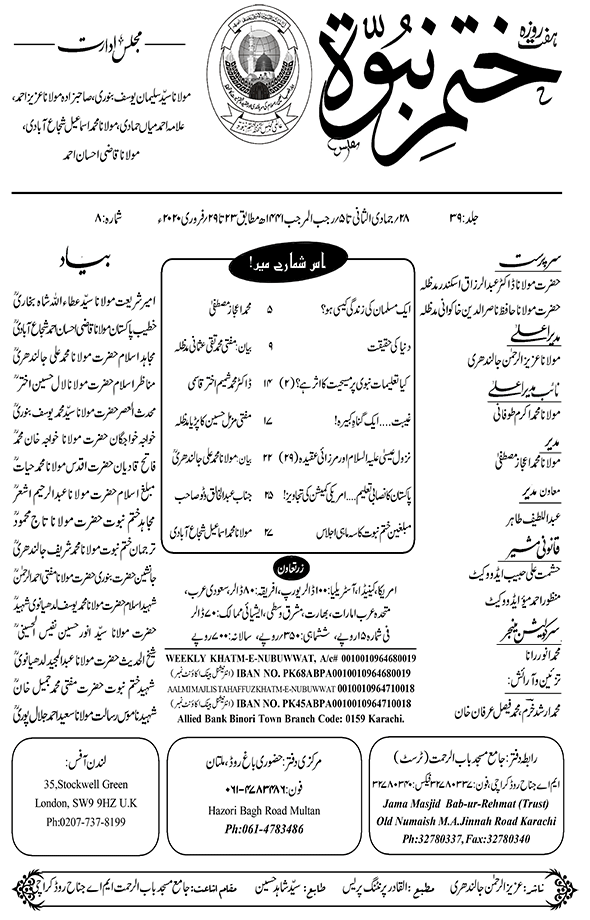 ہفت روزہ
ختم نبوۃ
مجلس ادارت
مولانا سیّد سلیمان یوسف بنوری، صاحبزادہ مولانا عزیز احمد،
علامہ احمد میاں حمادی، مولانا محمد اسماعیل شجاع آبادی،
مولانا قاضی احسان احمد
جلد: ۳۹
۲۸؍ جمادی الثانی تا ۵؍ رجب المرجب ۱۴۴۱ھ مطابق ۲۳ تا ۲۹؍ فروری ۲۰۲۰ء
شمارہ: ۸
سرپرست
حضرت مولانا ڈاکٹر عبدالرزاق اسکندر مدظلہ
حضرت مولانا حافظ ناصر الدین خاکوانی مدظلہ
مدیر اعلیٰ
مولانا عزیز الرحمٰن جالندھری
نائب مدیر اعلیٰ
مولانا محمد اکرم طوفانی
مدیر
مولانا محمد اعجاز مصطفیٰ
معاون مدیر
عبداللطیف طاہر
قانونی مشیر
حشمت علی حبیب ایڈووکیٹ
منظور احمد میؤ ایڈووکیٹ
سرکولیشن منیجر
محمد انور رانا
تزئین و آرائش:
محمد ارشد خرم، محمد فیصل عرفان خان
اس شمارے میں!
ایک مسلمان کی زندگی کیسی ہو؟ ۵ محمد اعجاز مصطفیٰ
دنیا کی حقیقت ۹ بیان: مفتی محمد تقی عثمانی مدظلہ
کیا تعلیمات نبوی پر مسیحیت کا اثر ہے؟ (۲) ۱۴ ڈاکٹر محمد شمیم اختر قاسمی
غیبت.... ایک گناہِ کبیرہ! ۱۷ مفتی مزمل حسین کاپڑیا مدظلہ
نزول عیسیٰ علیہ السلام اور مرزائی عقیدہ (۲۹) ۲۲ بیان: مولانا محمد علی جالندھریؒ
پاکستان کا نصابی تعلیم.... امریکی کمیشن کی تجاویز! ۲۵ جناب عبدالخالق وٹو صاحب
مبلغین ختم نبوت کا سہ ماہی اجلاس ۲۷ مولانا محمد اسماعیل شجاع آبادی
زر تعاون
امریکا، کینیڈا، آسٹریلیا: ۱۰۰ ڈالر یورپ، افریقہ: ۸۰ ڈالر سعودی عرب،
متحدہ عرب امارات، بھارت، مشرق وسطیٰ، ایشیائی ممالک: ۷۰ ڈالر
فی شمارہ ۱۵ روپے، ششماہی: ۳۵۰ روپے، سالانہ: ۷۰۰ روپے
WEEKLY KHATM-E-NUBUWWAT, A/c# 0010010964680019
IBAN NO. PK68ABPA0010010964680019 (انٹرنیشنل بینک اکاؤنٹ نمبر)
AALMI MAJLIS TAHAFFUZ KHATM-E-NUBUWWAT 0010010964710018
IBAN NO. PK45ABPA0010010964710018 (انٹرنیشنل بینک اکاؤنٹ نمبر)
Allied Bank Binori Town Branch Code: 0159 Karachi.
بیاد
امیر شریعت مولانا سیّد عطاء اللہ شاہ بخاریؒ
خطیب پاکستان مولانا قاضی احسان احمد شجاع آبادیؒ
مجاہد اسلام حضرت مولانا محمد علی جالندھریؒ
مناظر اسلام حضرت مولانا لال حسین اخترؒ
محدث العصر حضرت مولانا سیّد محمد یوسف بنوریؒ
خواجہ خواجگان حضرت مولانا خواجہ خان محمدؒ
فاتح قادیان حضرت اقدس مولانا محمد حیاتؒ
مبلغ اسلام حضرت مولانا عبدالرحیم اشعرؒ
مجاہد ختم نبوت حضرت مولانا تاج محمودؒ
ترجمان ختم نبوت حضرت مولانا محمد شریف جالندھریؒ
جانشین حضرت بنوری حضرت مولانا مفتی احمد الرحمٰنؒ
شہید اسلام حضرت مولانا محمد یوسف لدھیانوی شہیدؒ
حضرت مولانا سیّد انور حسین نفیس الحسینیؒ
شیخ الحدیث حضرت مولانا عبدالمجید لدھیانویؒ
شہید ختم نبوت حضرت مفتی محمد جمیل خانؒ
شہید ناموس رسالت مولانا سعید احمد جلال پوریؒ
رابطہ دفتر: جامع مسجد باب الرحمت (ٹرسٹ)
ایم اے جناح روڈ کراچی، فون: ۳۲۷۸۰۳۳۷ فیکس: ۳۲۷۸۰۳۴۰
Jama Masjid Bab-ur-Rehmat (Trust)
Old Numaish M.A.Jinnah Road Karachi
Ph:32780337, Fax:32780340
مرکزی دفتر: حضوری باغ روڈ، ملتان
فون: ۰۶۱-۴۷۸۳۴۸۶
Hazori Bagh Road Multan
Ph:061-4783486
لندن آفس:
35,Stockwell Green
London, SW9 9HZ U.K
Ph:0207-737-8199
ناشر: عزیز الرحمٰن جالندھری مطبع: القادر پرنٹنگ پریس طابع: سیّد شاہد حسین مقام اشاعت: جامع مسجد باب الرحمت ایم اے جناح روڈ کراچی